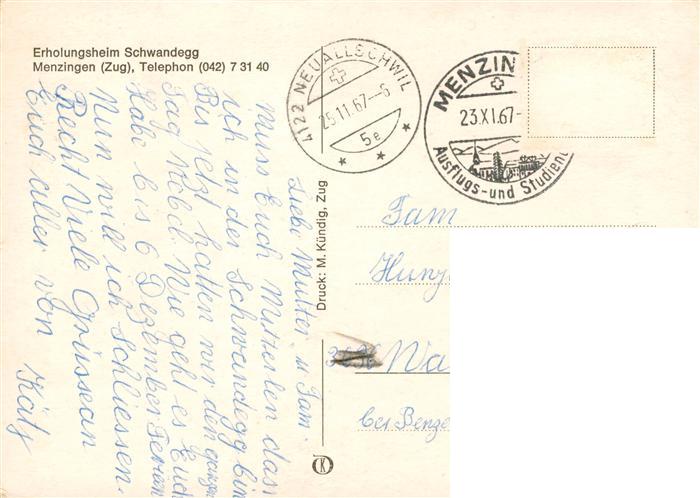 Erholungsheim Schwandegg
Menzingen (Zug), Telephon (042) 7 31 40
4122 NEUALLSCHWIL
25.11.67-6
5e
MENZIN
23.XI.67-
Ausflugs- und Studien
Druck: M. Kündig, Zug
Liebi Mutter. u Fam.
Muss Euch Mitteilen das
ich in der Schwandegg bin
Bis jetzt hatten wir den ganzen
Tag Nebel. Wie geht es Euch
Habe bis 6 Dezember Ferien
Nun will ich Schliessen.
Recht Viele Grüssean
Euch aller von
Fam
Hunz
Wa
bei Benze
K